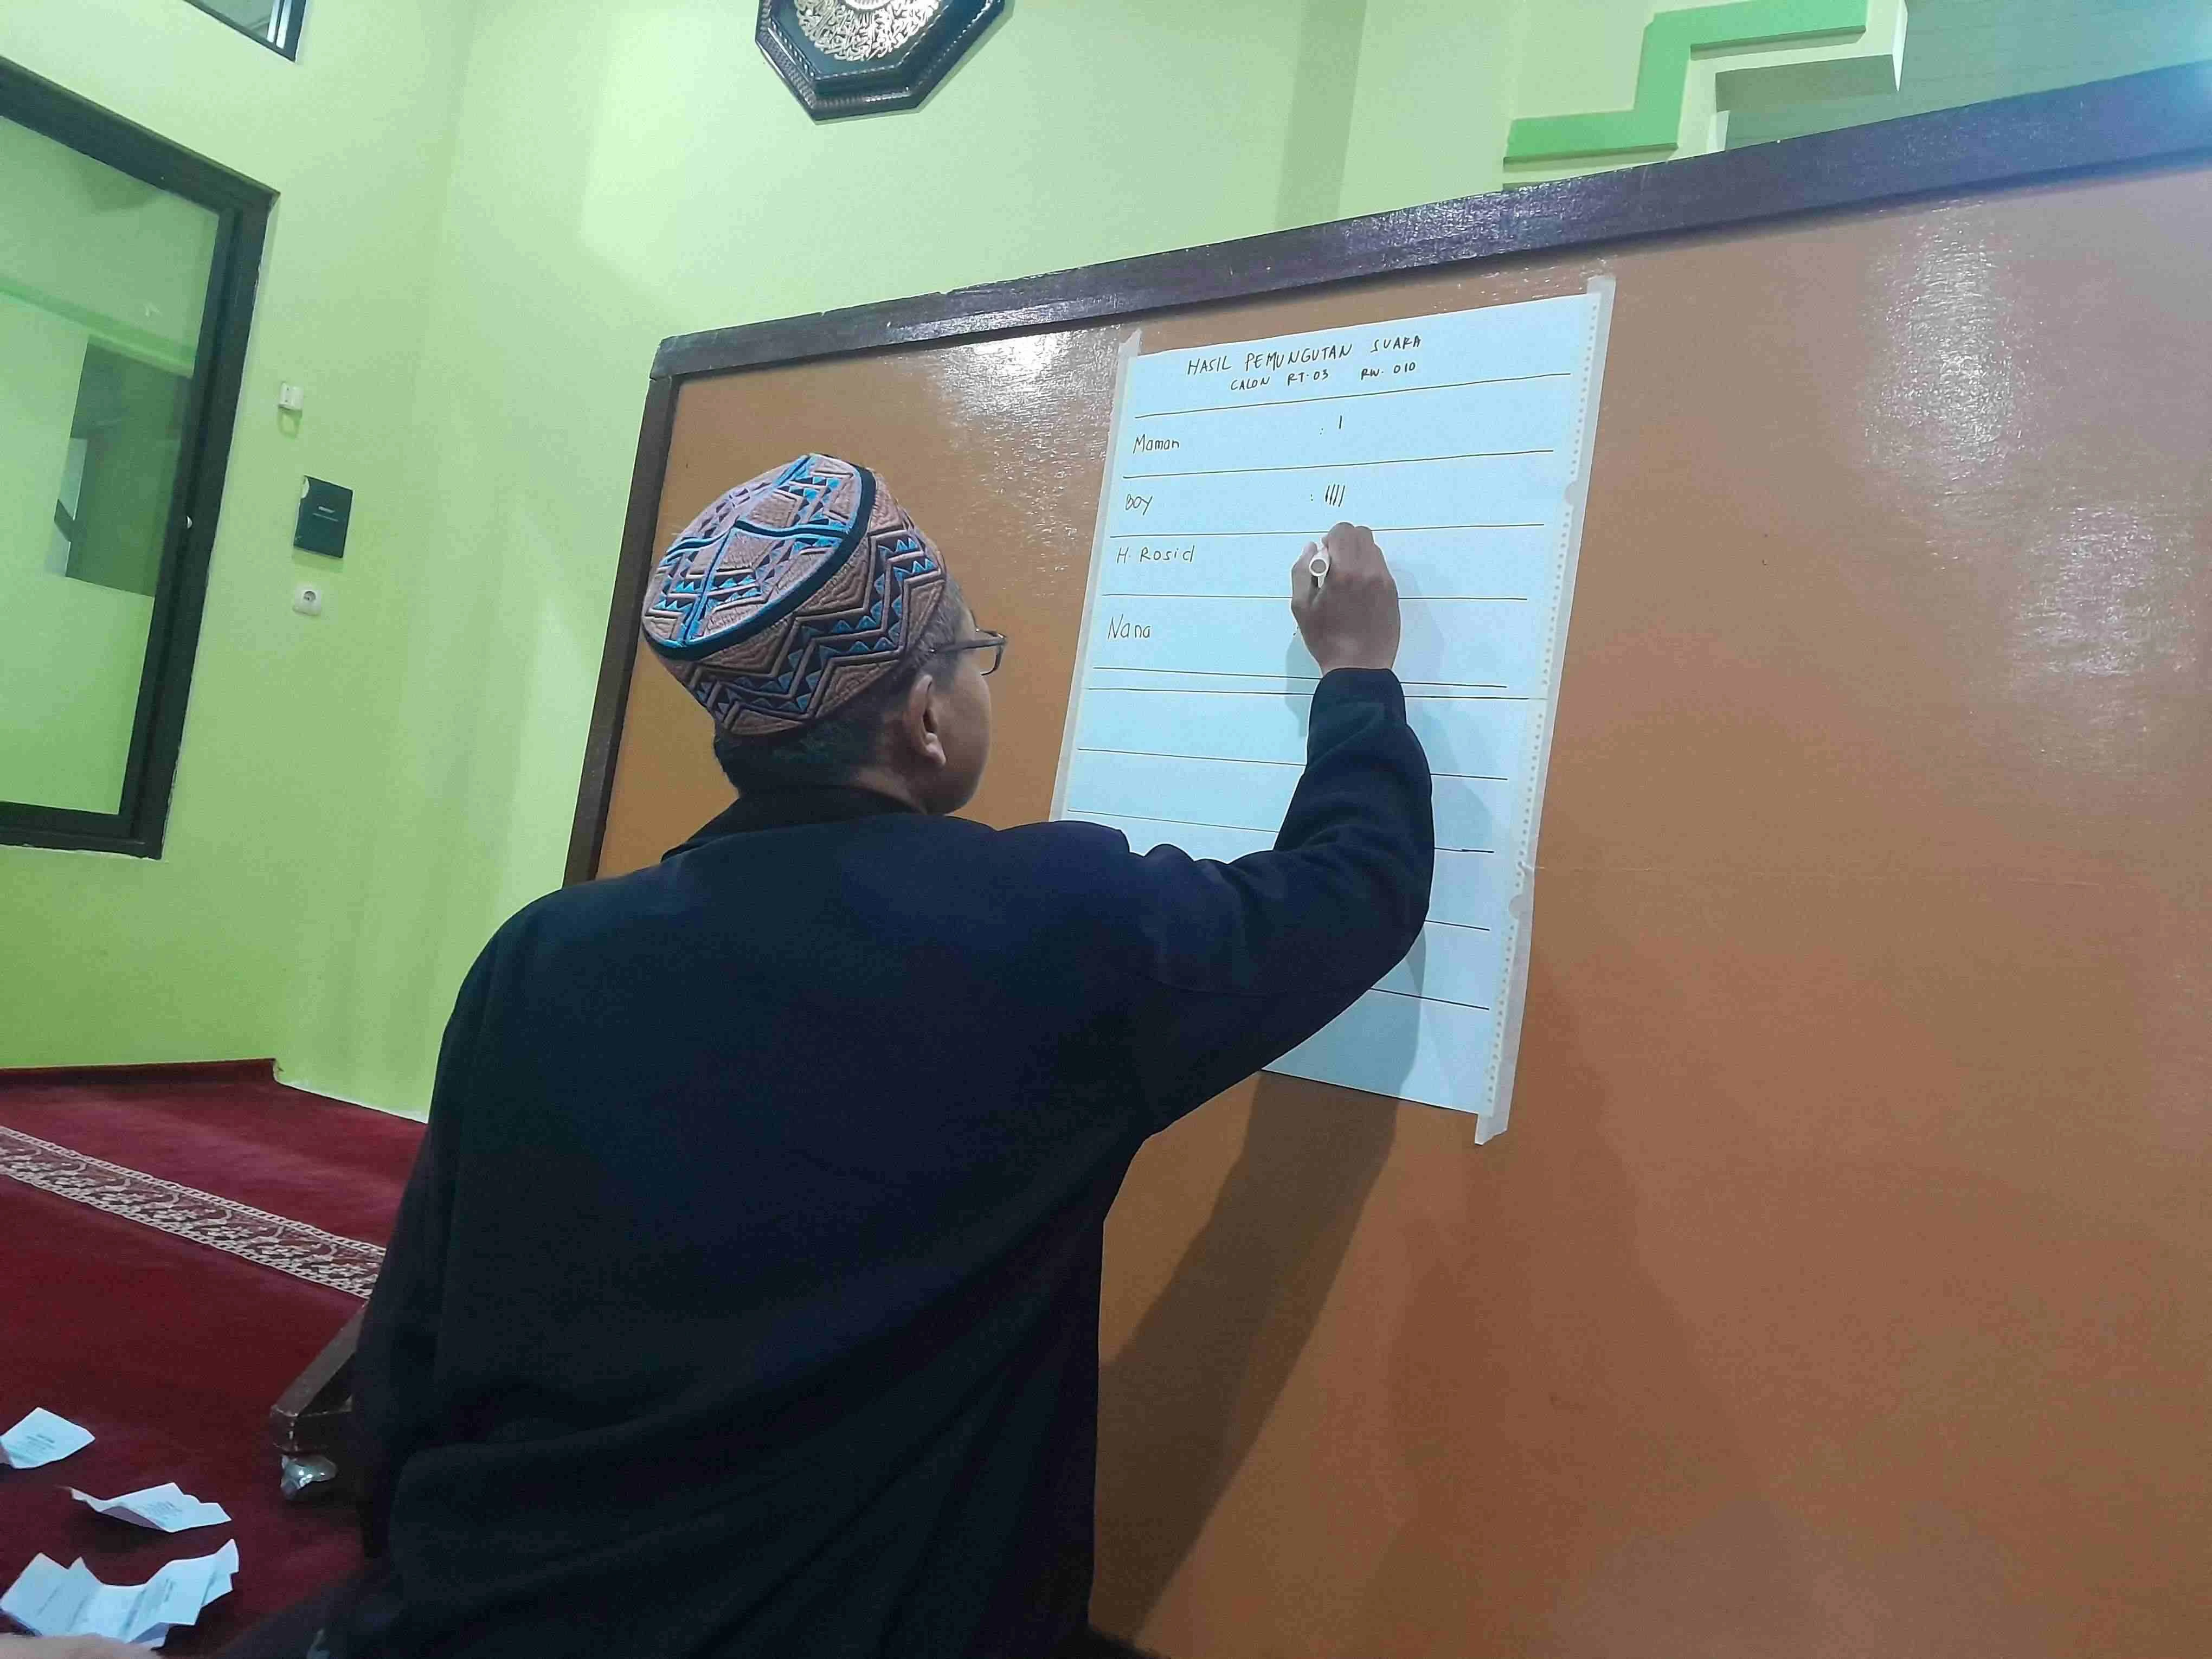 HASIL PEMUNGUTAN SUARA
CALON RT.03 RW.010
Maman : I
BOY : IIII
H. Rosid
Nana :